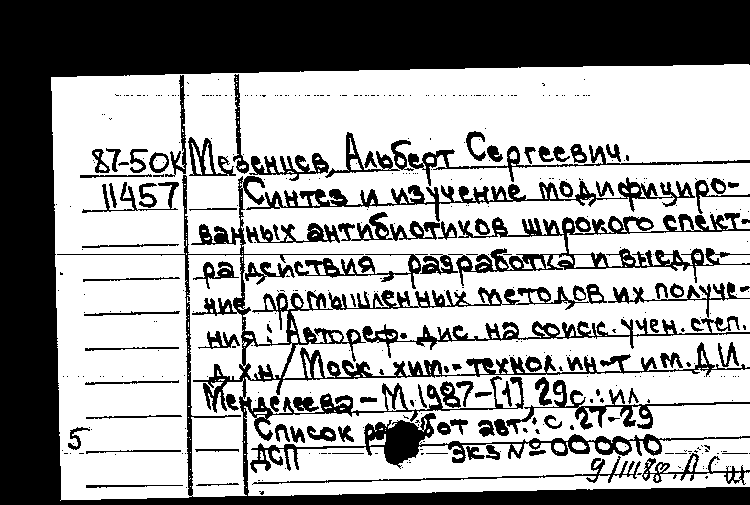 87-50К Мезенцев, Альберт Сергеевич.
11457 Синтез и изучение модифициро-
ванных антибиотиков широкого спект-
ра действия, разработка и внедре-
ние промышленных методов их получе-
ния: Автореф. дис. на соиск. учен. степ.
д.х.н. / Моск. хим.-технол. ин-т им. Д.И.
Менделеева. - М. 1987 - [1] 29с.: ил.
Список работ авт.: с. 27-29
5 ДСП Экз № 000010
9/III88. А.С